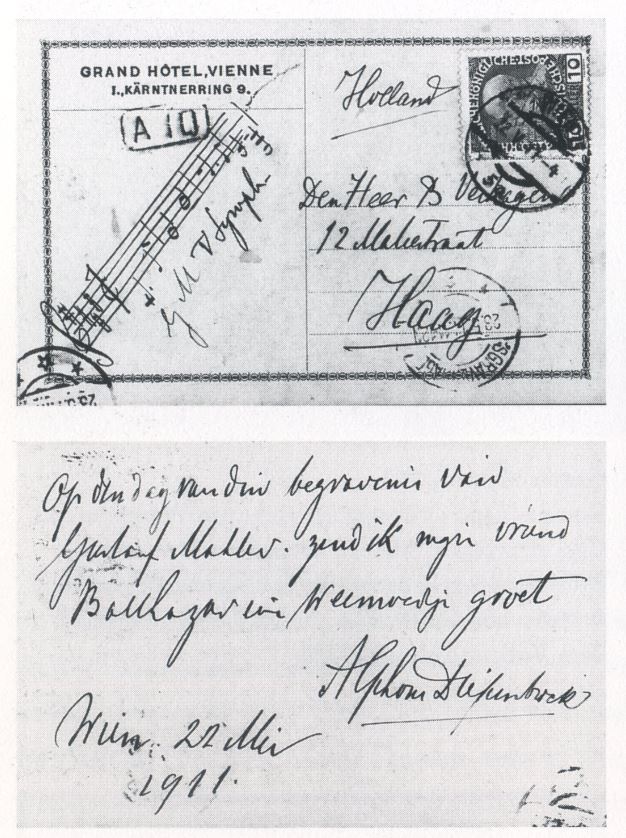 GRAND HÔTEL, VIENNE
I., KÄRNTNERRING 9.
A 10
G M V Symph.
Holland
10
Den Heer B
12 Maliestraat
Haag
Op den dag van den begravenis van
Gustav Mahler. zend ik mijn vriend
Balthazar een Weemoedige groet
Alphons Diepenbrock
Wien. 22 Mei
1911.